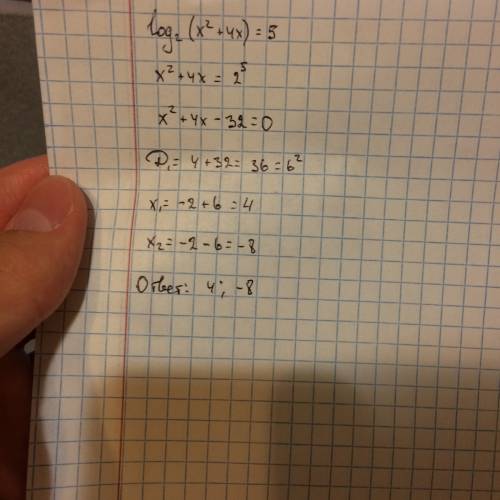 log₂(x²+4x)=5
x²+4x=2⁵
x²+4x-32=0
D₁=4+32=36=6²
x₁=-2+6=4
x₂=-2-6=-8
Ответ: 4; -8